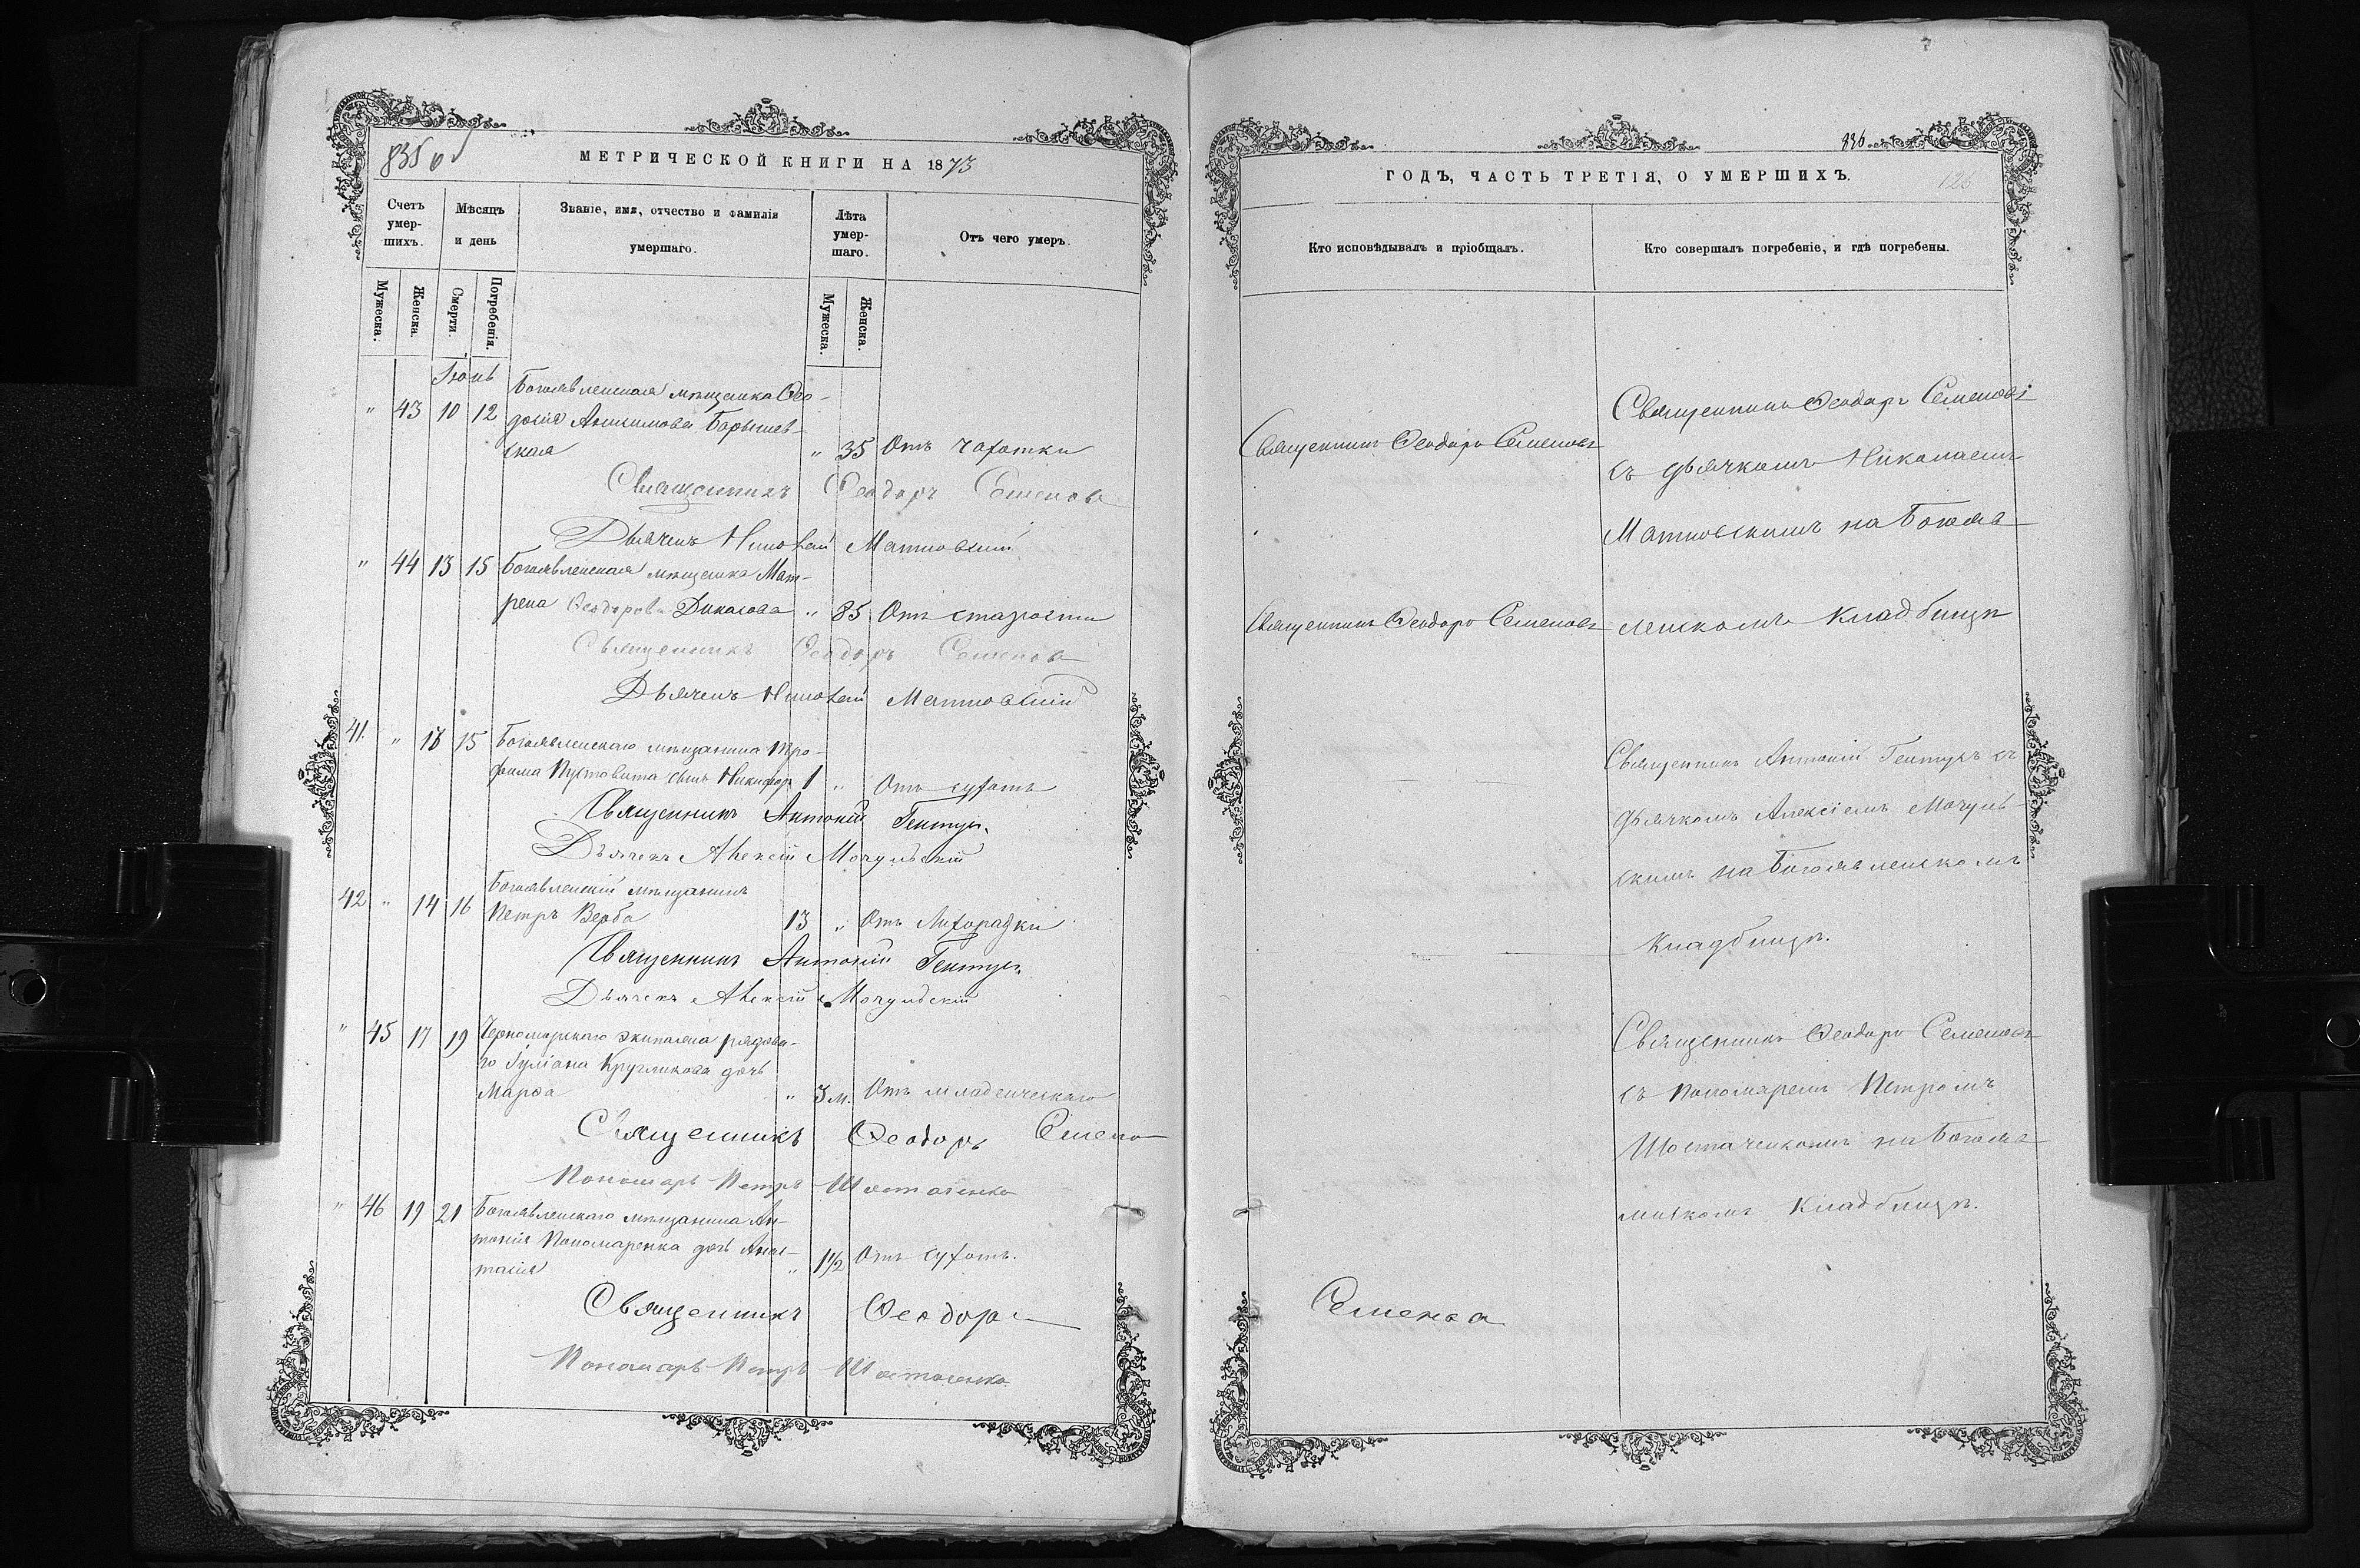 835 об
МЕТРИЧЕСКОЙ КНИГИ НА 1873
Счетъ умер-шихъ.
Мѣсяцъ и день
Званіе, имя, отчество и фамилія умершаго.
Лѣта умер-шаго.
Отъ чего умеръ.
Мужеска.
Женска.
Смерти.
Погребенія.
Мужеска.
Женска.
Іюнь
Богоявленская мѣщанка Ѳео-
" 43 10 12 досія Анисимова Барышев-
ская " 35 Отъ чахотки
Священникъ Ѳеодоръ Семеновъ
Дьячекъ Николай
" 44 13 15 Богоявленская мѣщанка Мат-
рена Ѳеодорова " 85 Отъ старости
Священникъ Ѳеодоръ Семеновъ
Дьячекъ Николай
41. " 13 15 Богоявленскаго мѣщанина Тро-
фима Пустовита сынъ Никифор 1 " Отъ сухотъ
Священникъ Антоній Гентуръ
Дьячекъ Алексій Мочульскій
Богоявленскій мѣщанинъ
42 " 14 16 Петръ Верба 13 " Отъ Лихорадки
Священникъ Антоній Гентуръ
Дьячекъ Алексій Мочульскій
" 45 17 19 Черноморскаго экипажа рядова-
го Іуліана Кругликова дочь
Марѳа " 3 м. Отъ младенческаго
Священникъ Ѳеодоръ Семено
Пономарь Петръ Шостаченко
" 46 19 21 Богоявленскаго мѣщанина Ан-
тонія Пономаренка дочь Анас-
тасія " 1 1/2 Отъ сухотъ.
Священникъ Ѳеодоръ
Пономарь Петръ Шостаченко
836
ГОДЪ, ЧАСТЬ ТРЕТІЯ, О УМЕРШИХЪ.
126
Кто исповѣдывалъ и пріобщалъ.
Кто совершалъ погребеніе, и гдѣ погребены.
Священникъ Ѳеодоръ Семеновъ
Священникъ Ѳеодоръ Семеновъ
съ дьячкомъ Николаемъ
на Богояв
Священникъ Ѳеодоръ Семеновъ
ленскомъ кладбищѣ
Священникъ Антоній Гентуръ съ
дьячкомъ Алексіемъ Мочуль-
скимъ на Богоявленскомъ
Кладбищѣ.
Священникъ Ѳеодоръ Семеновъ
съ пономаремъ Петромъ
Шостаченкомъ на Богояв
ленскомъ Кладбищѣ.
Семенова